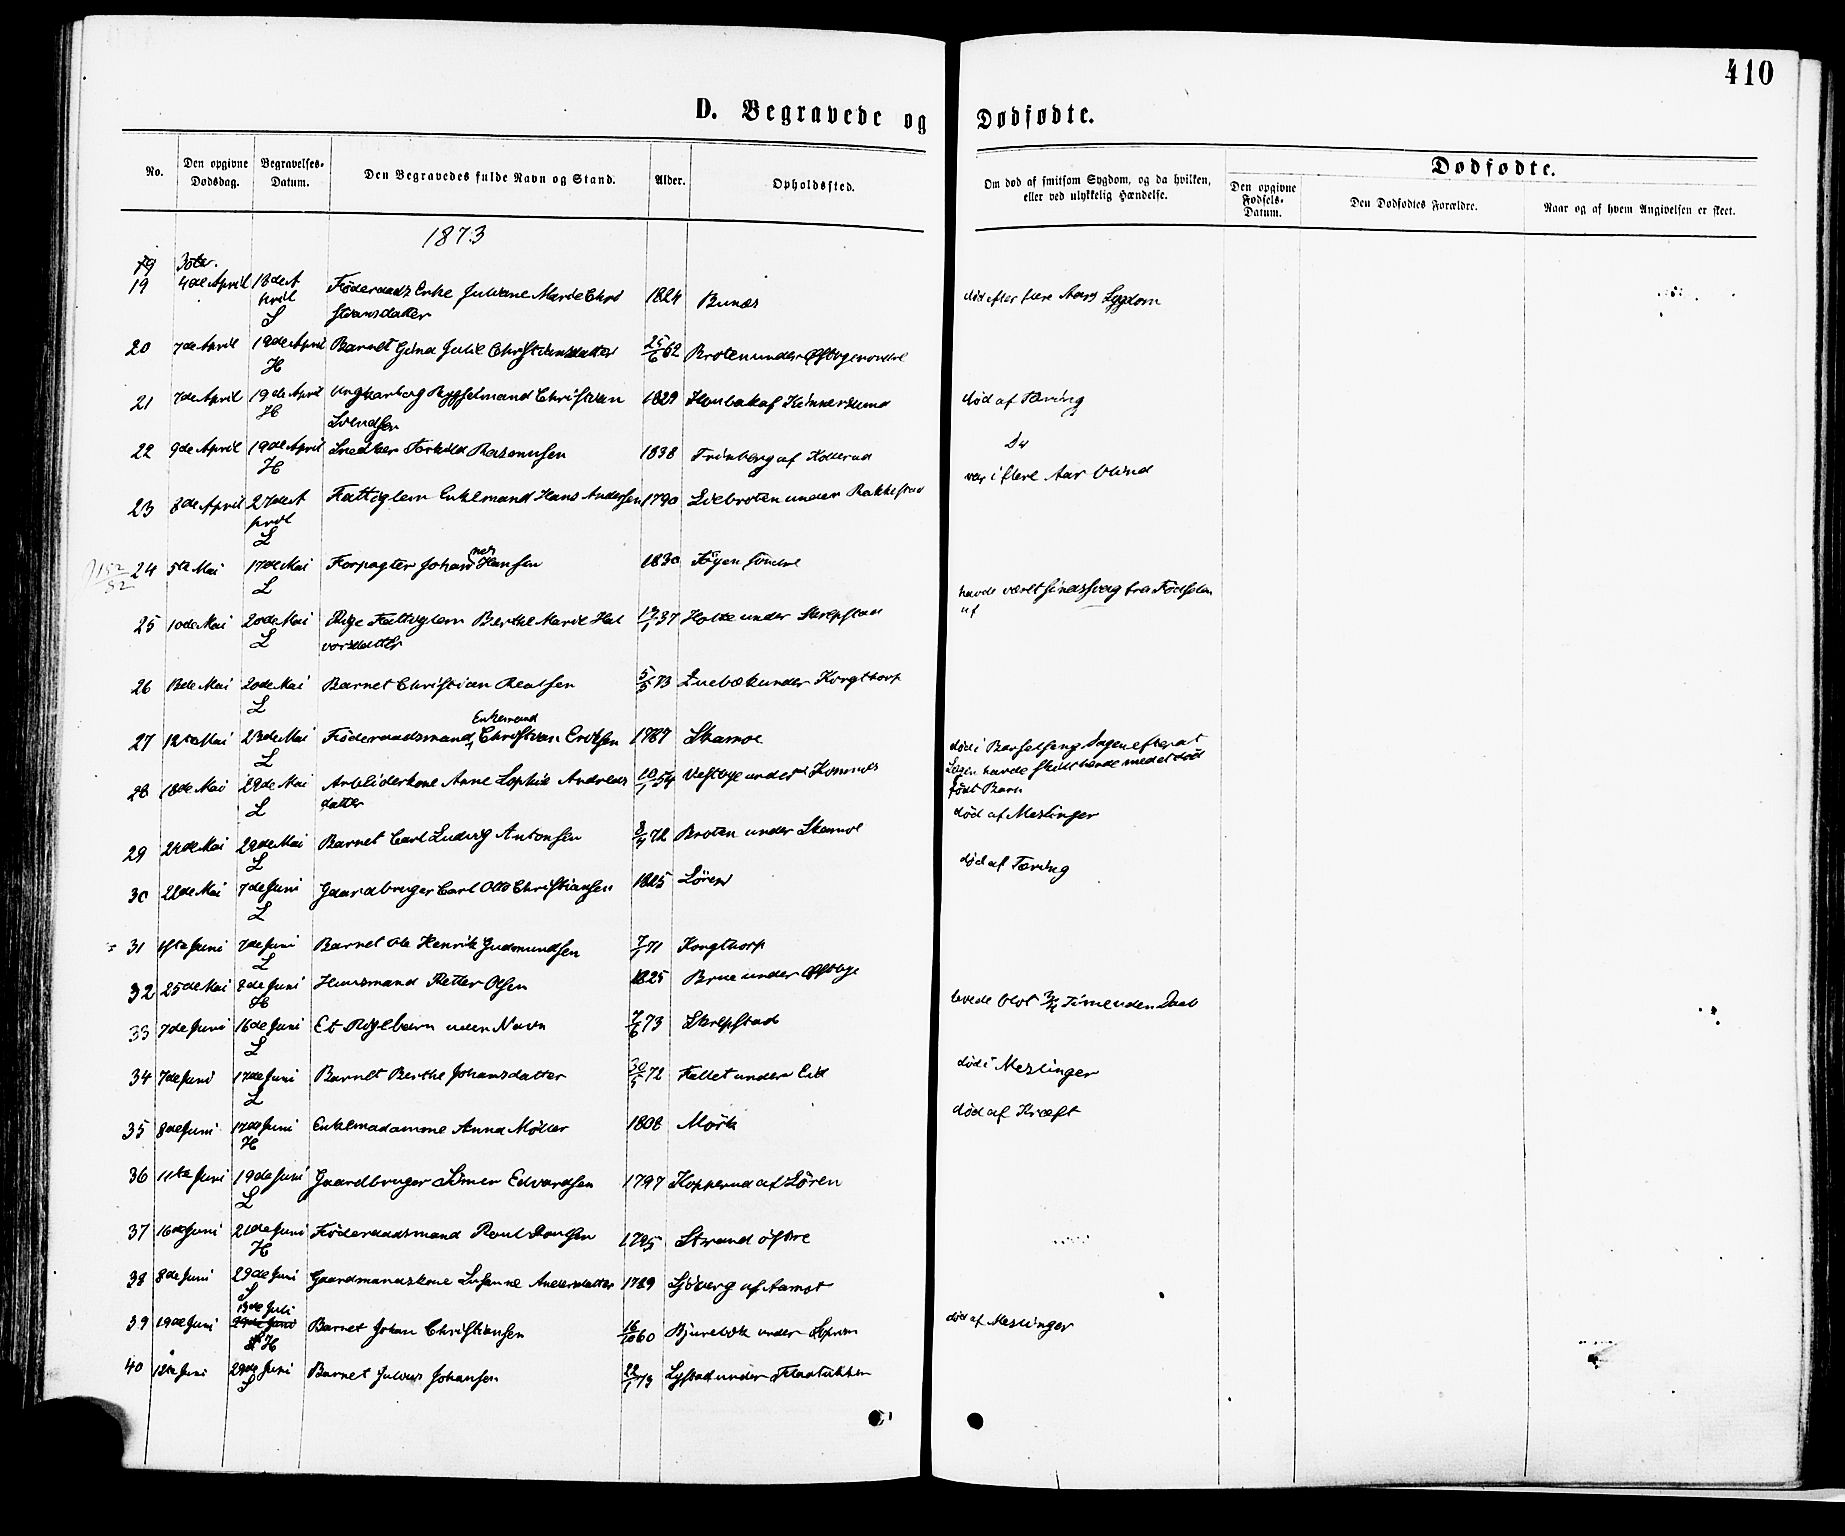 410
D. Begravede og Dødfødte.
No. Den opgivne Dødsdag. Begravelses-Datum. Den Begravedes fulde Navn og Stand. Alder. Opholdssted. Om død af smitsom Sygdom, og da hvilken, eller ved ulykkelig Hændelse. Dødfødte.
Den opgivne Fødsels-Datum. Den Dødfødtes Forældre. Naar og af hvem Angivelsen er skeet.
1873
19 4de April 18de April L Føderaads Enke Juliane Marie Christiansdatter 1824 Bunæs død efter flere Aars Sygdom
20 7de April 19de April H Barnet Gina Julie Christiansdatter 25/6 62 Broten under
21 7de April 19de April H Ungkarl og Christian Svendsen 1829 af død af Tæring
22 9de April 19de April H Snedker Torkild Rasmussen 1838 af Kollerud Do
23 8de April 27de April L Fattiglem Enkemand Hans Andersen 1790 Liebroten under Rakkestad var i flere Aar blind
24 5te Mai 17de Mai L Forpagter Johannes Hansen 1830 Føyen
25 10de Mai 20de Mai L Pige Fattiglem Berthe Marie Halvorsdatter 37 Holte under Skrepstad havde været sindssvag fra Fødselen af
26 13de Mai 20de Mai L Barnet Christian 5/5 73 under Korgthorp
27 12te Mai 23de Mai L Føderaadsmand Enkemand Christian Eriksen 1787 Skamoe
28 18de Mai 29de Mai L Arbeiderkone Anne Sophie Andreasdatter 10/1 54 Vestbye under Komnes død i Barselseng Dagen efter at havde skilt hende med et død født Barn
29 24de Mai 29de Mai L Barnet Carl Ludvig Antonsen 72 Broten under Skamoe død af Meslinger
30 22de Mai 7de Juni L Gaardbruger Carl Otto Christiansen 1825 Løren død af Tæring
31 1ste Juni 7de Juni L Barnet Ole Henrik Gudmundsen 71 Korgthorp
32 25de Mai 8de Juni H Huusmand Petter Olsen 1825 Brue under Østbye
33 7de Juni 16de Juni L Et Pigebarn uden Navn 7/6 73 Skrepstad levede blot 3/4 Time uden Daab
34 7de Juni 17de Juni L Barnet Berthe Johansdatter 30/5 72 Fallet under Eid død i Meslinger
35 8de Juni 17de Juni H Enkemadamme Anna Møller 1808 Mørk død af Kræft
36 11te Juni 19de Juni L Gaardbruger Simen Edvardsen 1797 Kopperud af Løren
37 16de Juni 21de Juni H Føderaadsmand Poul 1795 Strand østre
38 8de Juni 29de Juni L Gaardmandskone Susanne Andersdatter 1789 Sjøberg af Aamot
39 19de Juni 13de Juli H Barnet Johan Christiansen 16/10 60 Bjurebæk under død af Meslinger
40 12te Juni 29de Juni L Barnet Julius Johansen 22/1 73 Lystad under